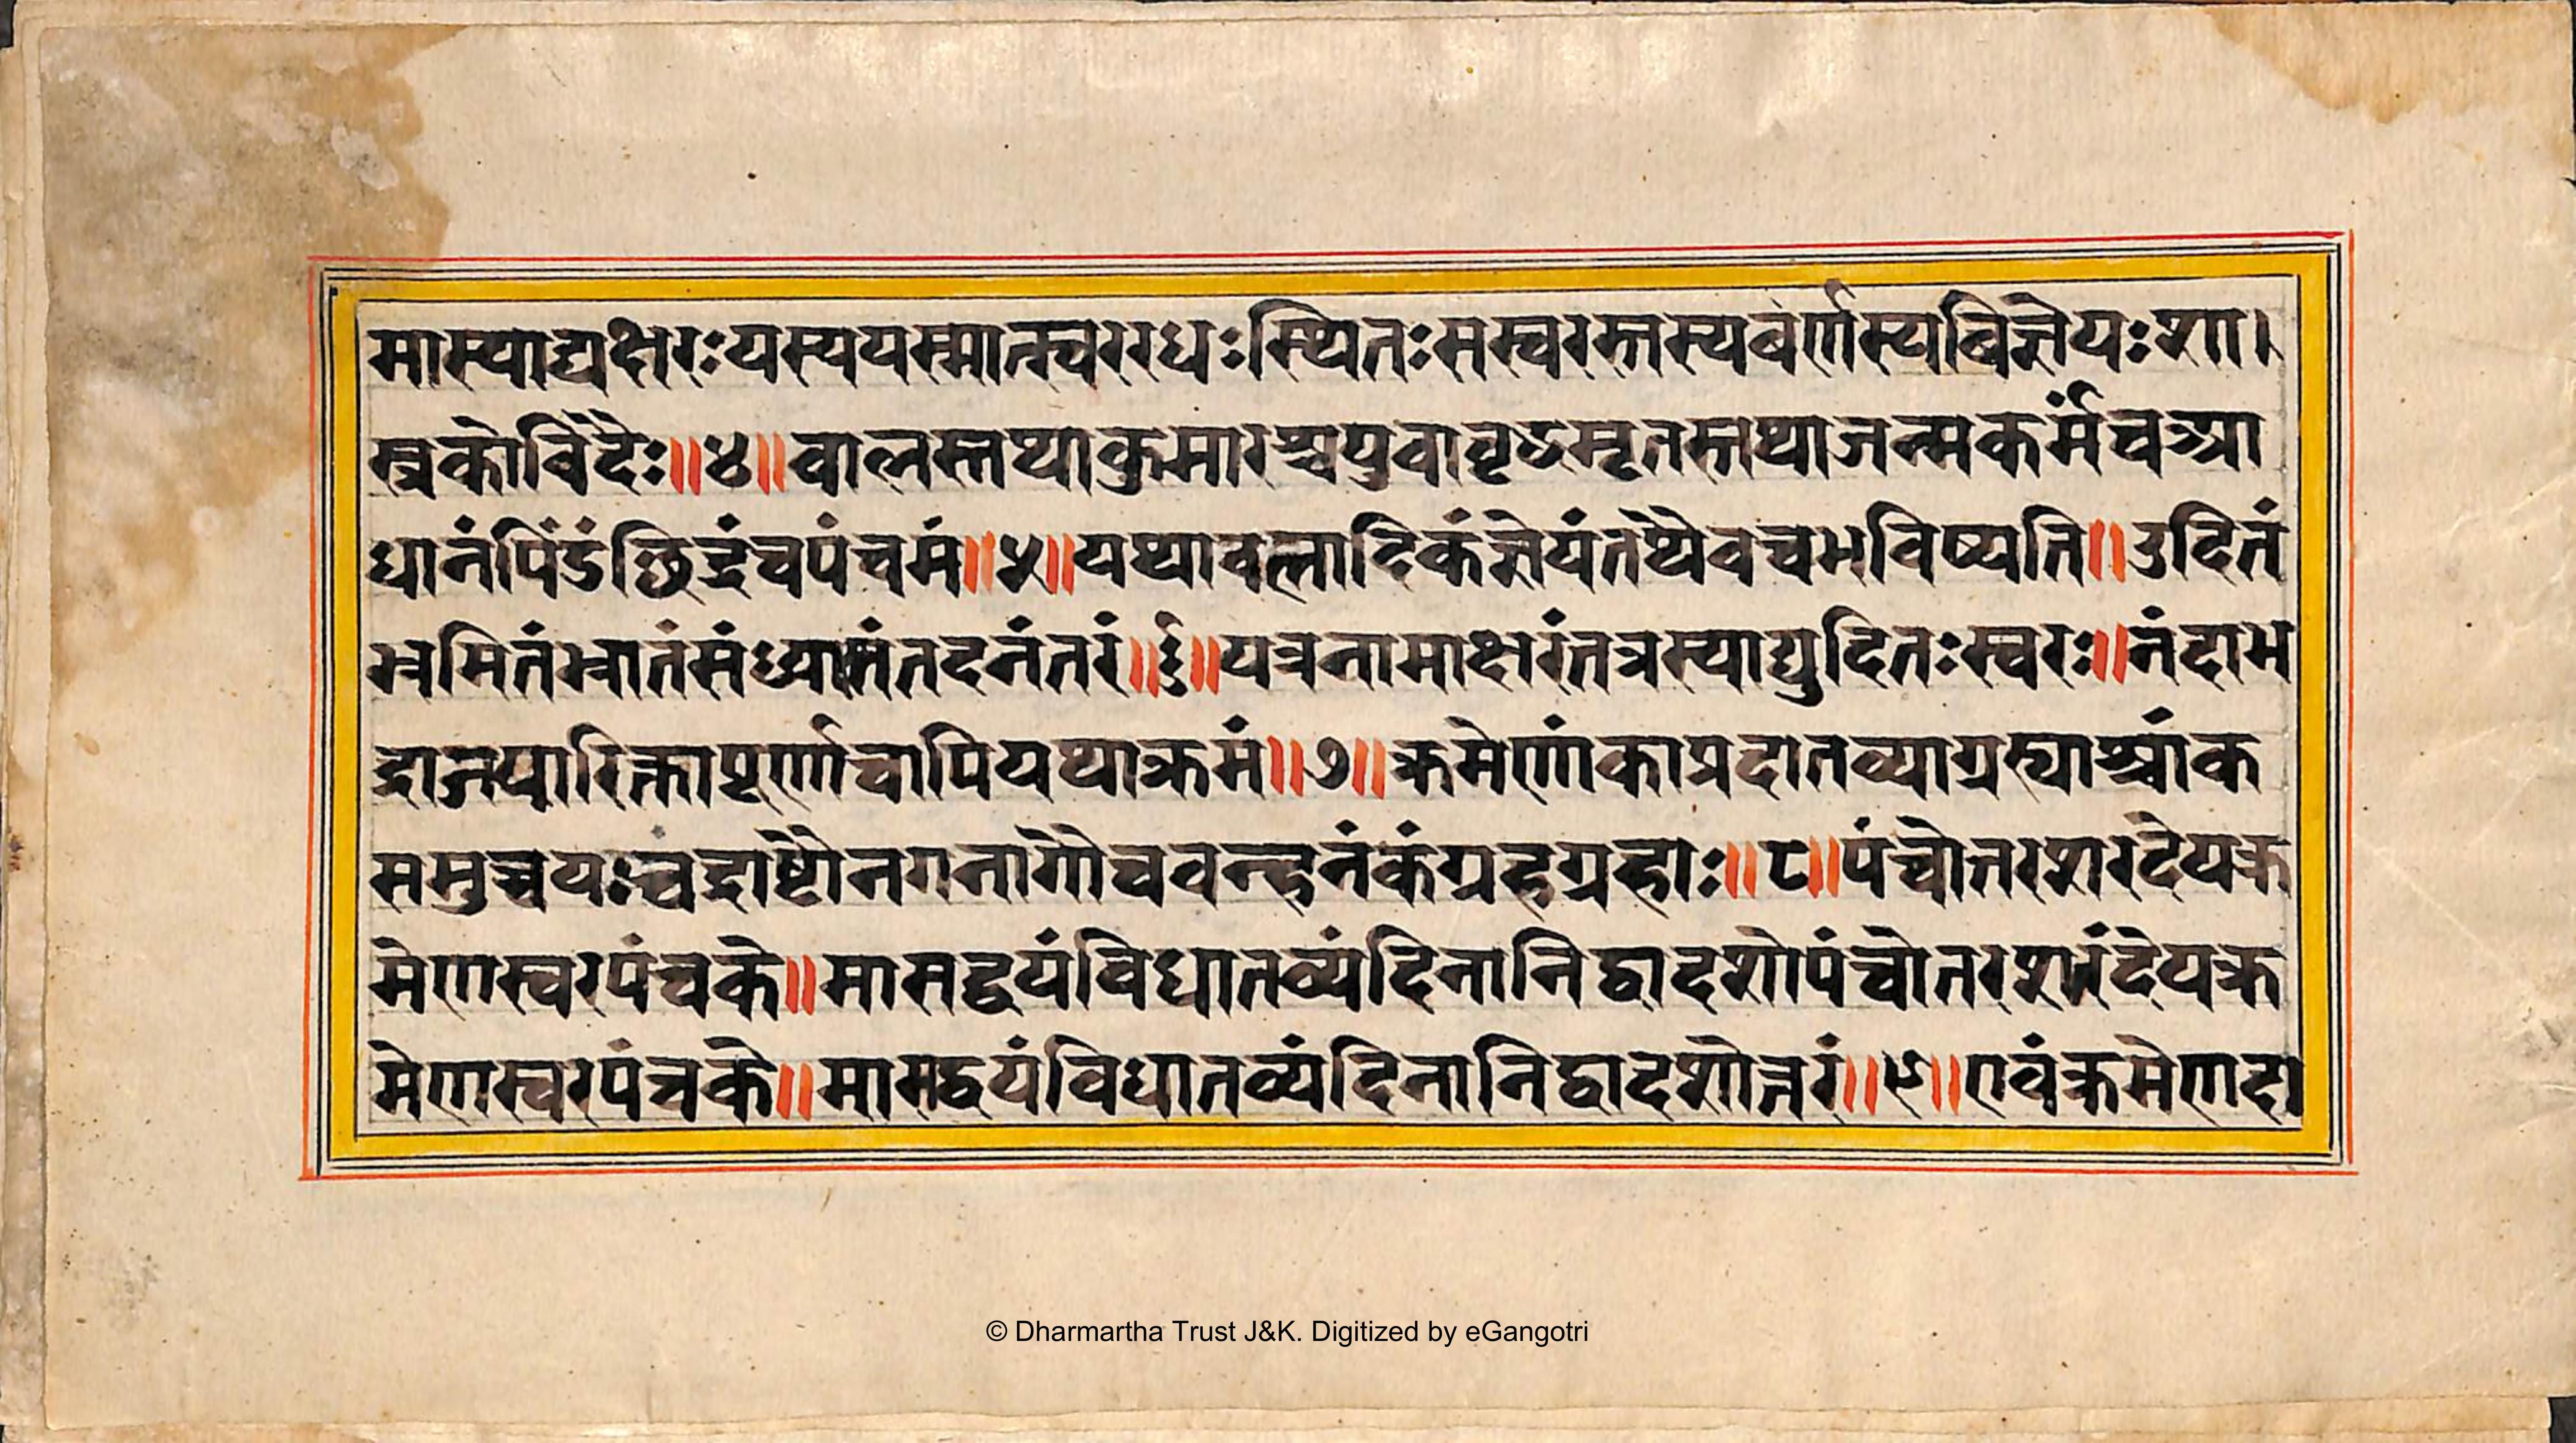 मास्याद्यक्षरःयस्ययस्मात्स्वररधःस्थितःसस्वरस्तस्यबंर्णस्यबिज्ञेयःशा।
स्त्रकोविंदैः॥४॥वालस्तथाकुमारश्चयुवावृद्धमृतस्तथाजन्मकर्मंचआ
धानंपिंडंछिद्रंचपंचमं॥५॥यथावलादिकंज्ञेयंतथैवचभविष्यति॥उदितं
भ्रमितंभ्रातंसंध्यास्तंतदनंतरं॥६॥यत्रनामाक्षरंतत्रस्याद्युदितःस्वरः॥नंदाभ
द्राजयारिक्तापूर्णाचापियथाक्रमं॥७॥क्रमेणांकाप्रदातव्याग्रस्याश्चांक
समुच्चयःचद्राष्टौनगनागौचवन्हनंकंग्रहग्रहाः॥८॥पंचोतरशरदेयक्र
मेणस्वरपंचके॥मासद्वयंविधातव्यंदिनानिद्वादशोपंचोतरशरंदेयक्र
मेणस्वरपंचके॥मासद्वयंविधातव्यंदिनानिद्वादशोत्तरं॥९॥एवंक्रमेणदा
© Dharmartha Trust J&K. Digitized by eGangotri